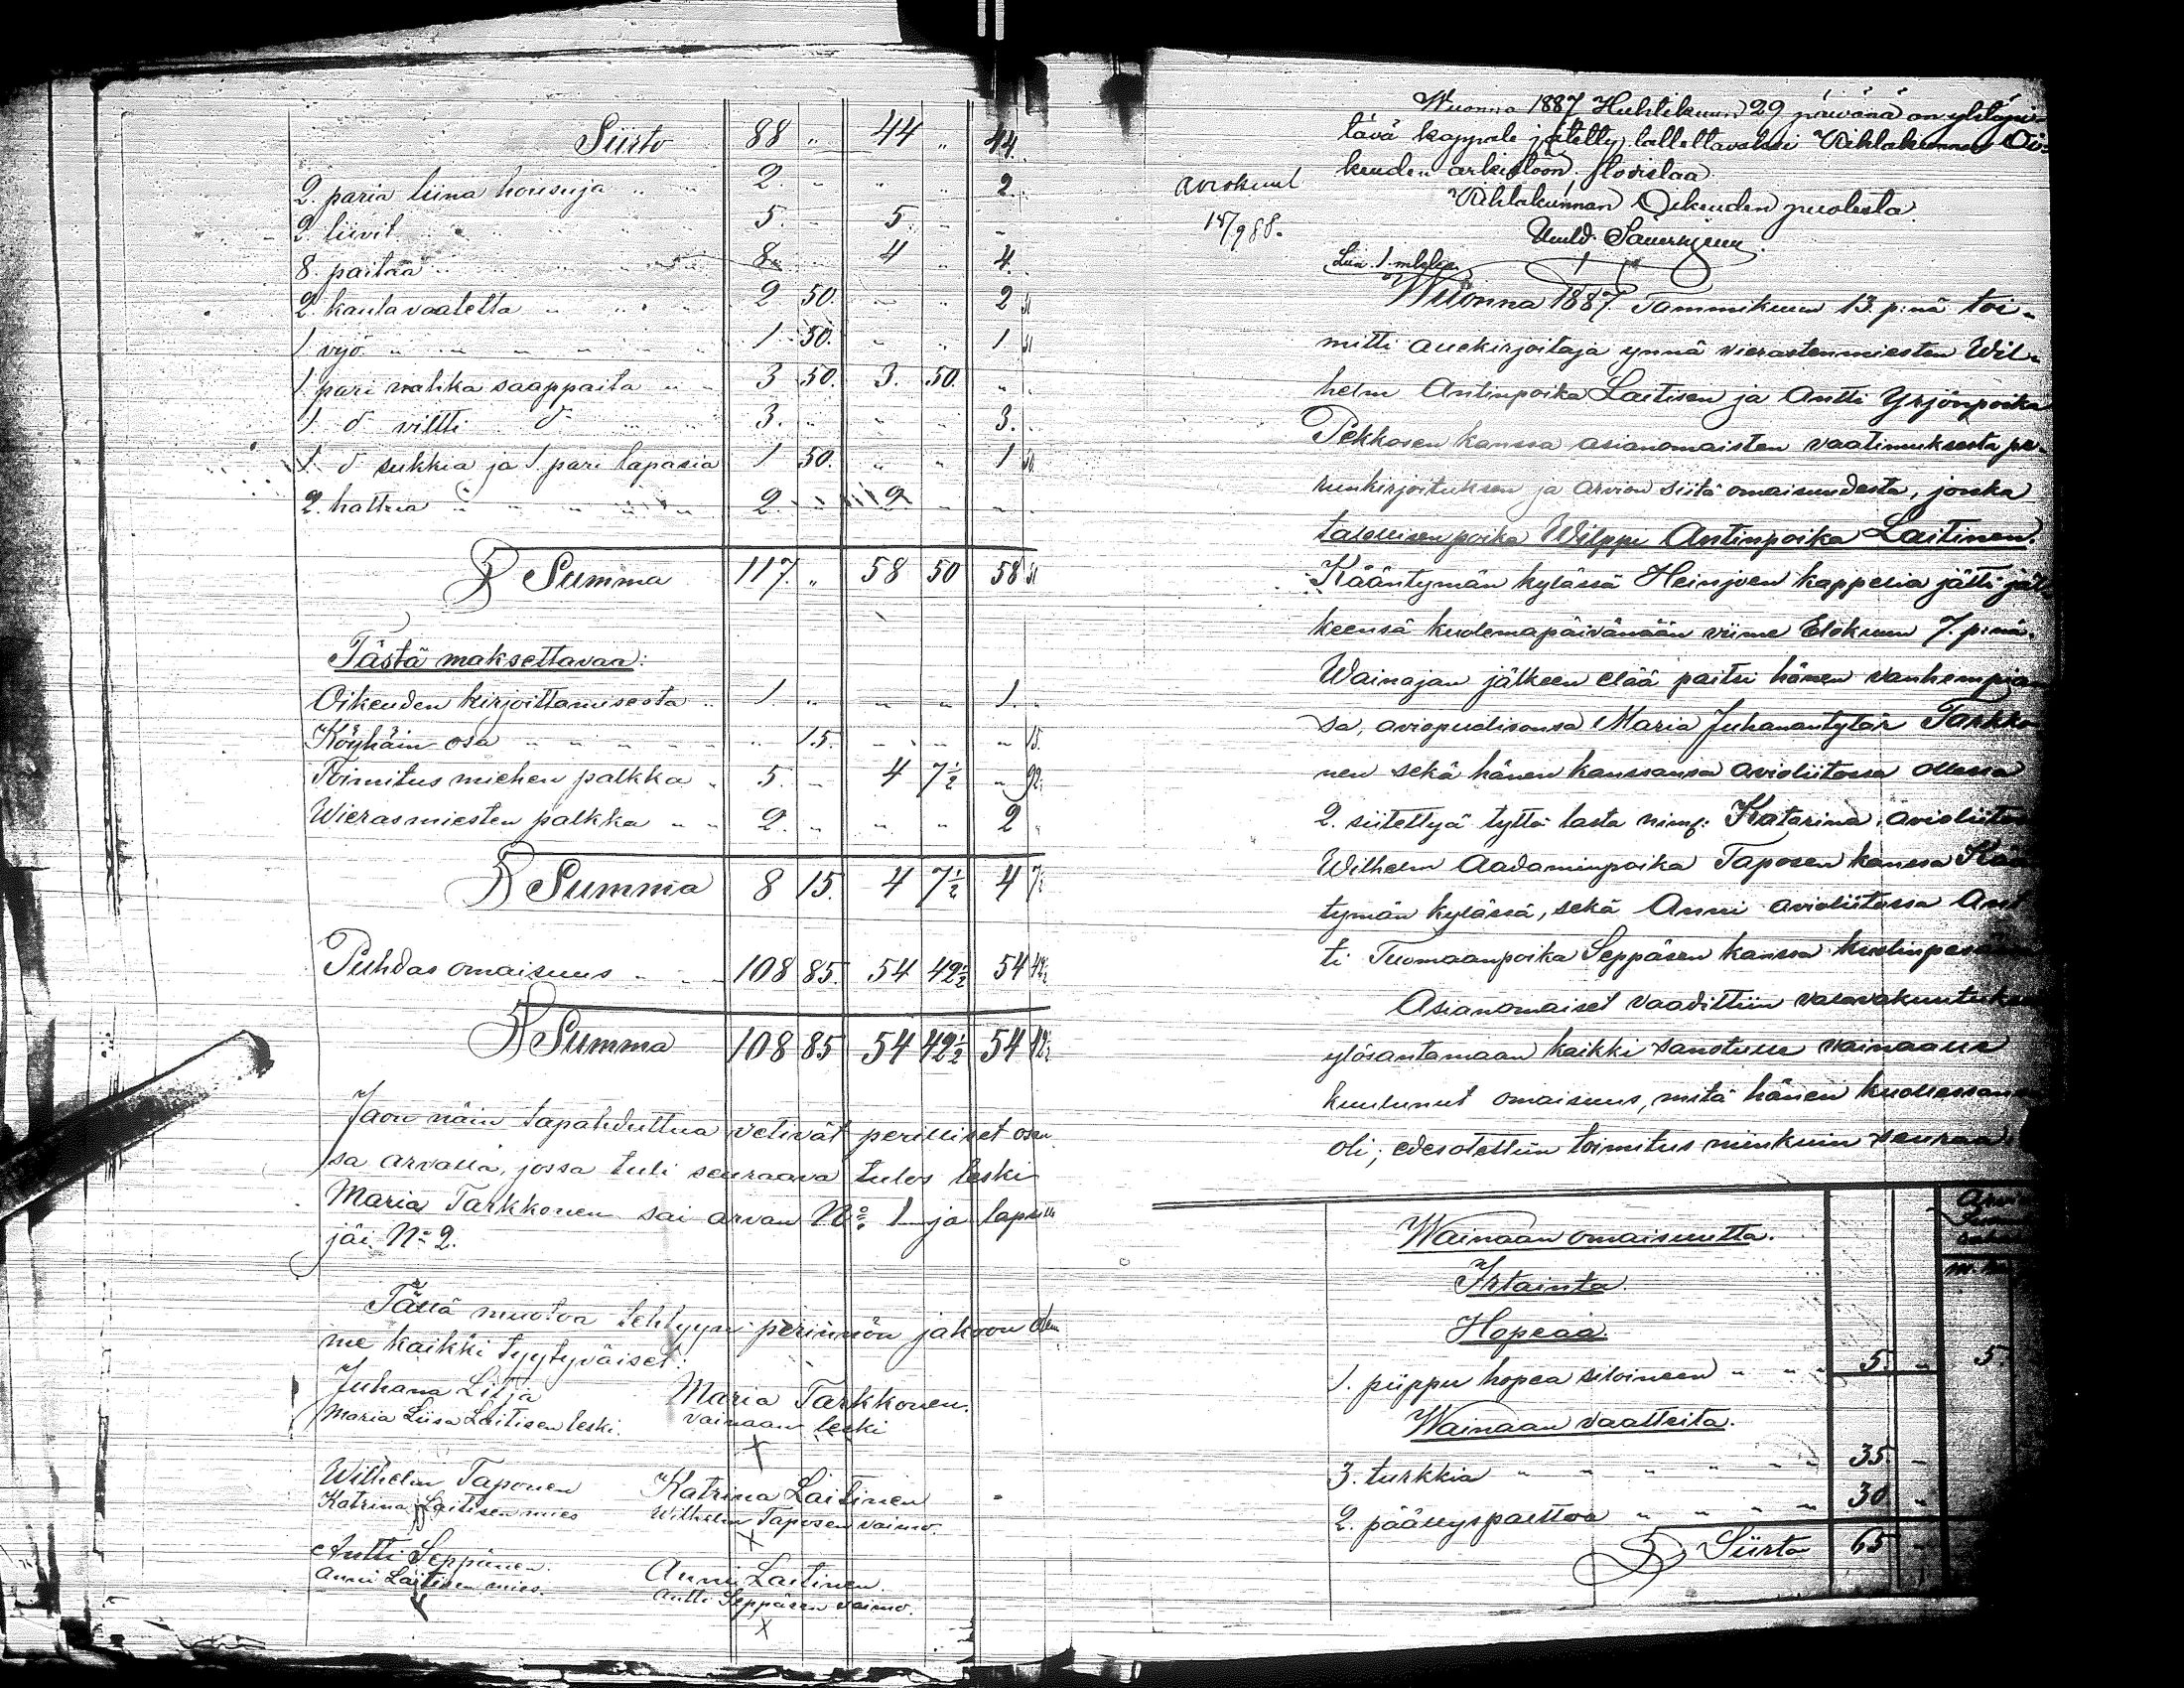 Siirto 88 " 44 " 44 "
2. paria liina housuja " " 2. " " " 2. "
2. liivit " " 5. " 5. " "
8. paitaa " " 8 " 4 " 4. "
2. kaulavaatetta " " " 2 50. " " 2 50
1 vyö " " " " " 1 50. " " 1 50
1. pari nahka saappaita " " 3 50. 3. 50. " "
1. d viltti d " " 3. " " " 3. "
1. d sukkia ja 1. pari lapasia 1 50. " " 1 50
2. hattua " " " " " 2. " 2 " " "
Summa 117. " 58 50 58 50
Tästä maksettavaa:
Oikeuden kirjoittamisesta " 1. " " " 1. "
Köyhäin osa " " " " " " 15. " " " 15.
Toimitus miehen palkka " 5. " 4 7½ " 92½
Wierasmiesten palkka " " 2. " " " 2 "
Summa 8 15. 4 7½ 4 7½
Puhdas omaisuus " " " 108 85. 54 42½ 54 42½
Summa 108 85 54 42½ 54 42½
Jaon näin tapahduttua vetivät perilliset osan
sa arvalla, jossa tuli seuraava tulos leski
Maria Tarkkonen sai arvan No 1 ja lapsille
jäi No 2.
Tällä muotoa tehtyyn perinnön jakoon olem
me kaikki tyytyväiset:
Juhana Litja Maria Tarkkonen.
Maria Liisa Laitisen leski. vainaan leski
X
Wilhelm Taponen Katrina Laitinen
Katrina Laitisen mies Wilhelm Taposen vaimo.
X
Antti Seppänen. Anni Laitinen.
Anni Laitisen mies. Antti Seppäsen vaimo.
X
Wuonna 1887 Huhtikuun 29 päivänä on yhtäpi-
tävä kappale jätetty talletettavaksi Kihlakunnan Oi-
keuden arkistoon.
Kihlakunnan Oikeuden puolesta
15/9 88.
Wuonna 1887. Tammikuun 13. p:nä toi-
mitti allekirjoitaja ynnä vierastenmiesten Wil-
helm Antinpoika Laitisen ja Antti Yrjönpoika
Pekkosen kanssa asianomaisten vaatimuksesta pe-
runkirjoituksen ja arvion siitä omaisuudesta, jonka
talollisen poika Wilppi Antinpoika Laitinen.
Kääntymän kylässä Heinjoen kappelia jätti jäl
keensä kuolemapäivänään viime Elokuun 7. p:nä.
Wainajan jälkeen elää paitsi hänen vanhempian
sa, aviopuolisonsa Maria Juhanantytär Tarkko
nen sekä hänen kanssansa avioliitossa ollessa
2. siitettyä tyttö lasta nimf: Katarina, avioliiton
Wilhelm Aadaminpoika Taposen kanssa Kään
tymän kylässä, sekä Anni avioliitossa Ant
ti Tuomaanpoika Seppäsen kanssa kuolinpesässä
Asianomaiset vaadittiin valavakuutuksen
ylösantamaan kaikki sanotulle vainaalle
kuulunut omaisuus, mitä hänen kuollessansa
oli; edesotettiin toimitus niinkuin seuraa:
Wainaan omaisuutta.
Irtainta.
Hopeaa.
1. piippu hopea siloineen " " " 5. " 5.
Wainaan vaatteita.
3. turkkia " " " " " " 35. "
2. päällyspalttoa " " " " " 30 "
Siirto 65 "